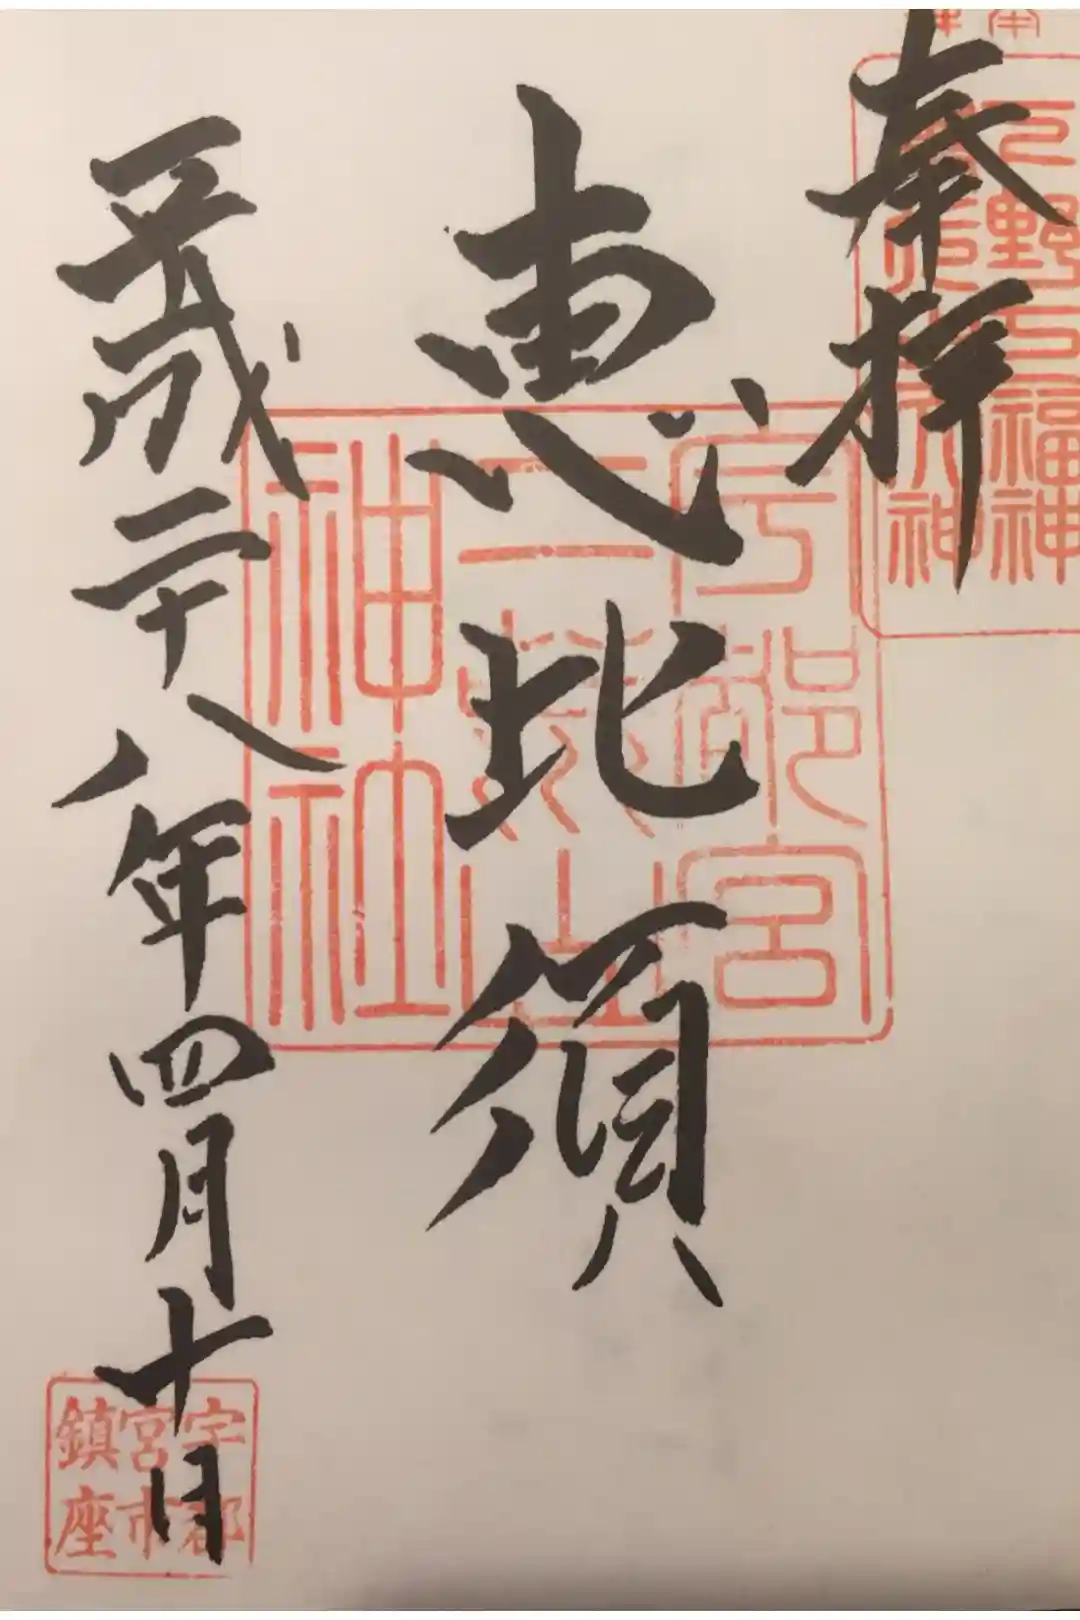 奉拝
恵比須
平成二十八年四月十日
宇都宮
二荒山
神社
下野七福神
宇都
宮市
鎮座